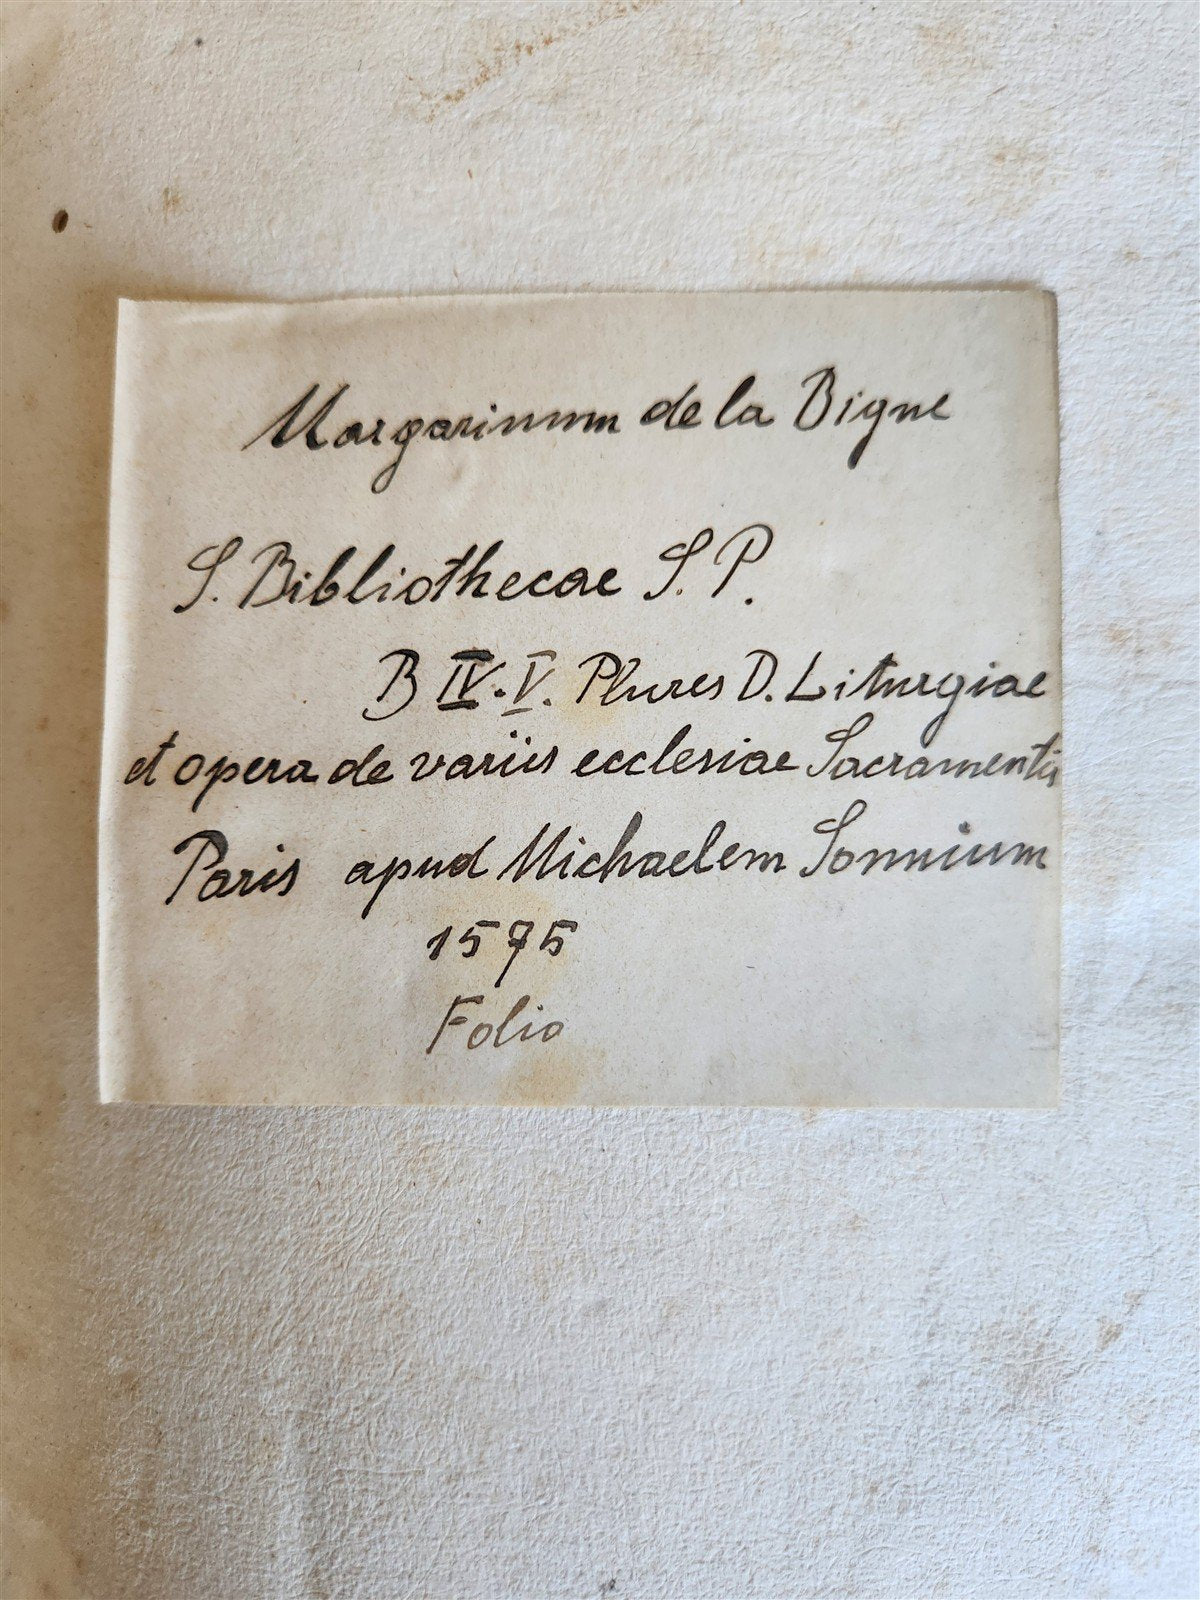 Margarinum de la Bigne
S. Bibliothecae S. P.
B IV. V. Plures D. Liturgiae
et opera de variis ecclesiae Sacramentis
Paris apud Michaelem Somnium
1575
Folio